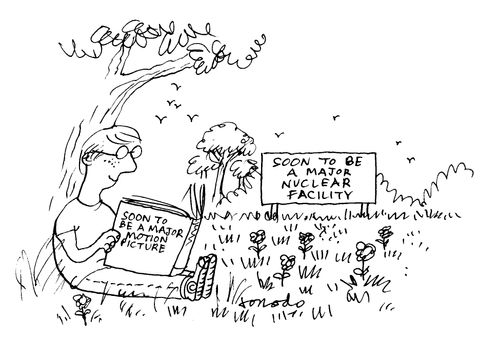 SOON TO BE
A MAJOR
MOTION
PICTURE
SOON TO BE
A MAJOR
NUCLEAR
FACILITY